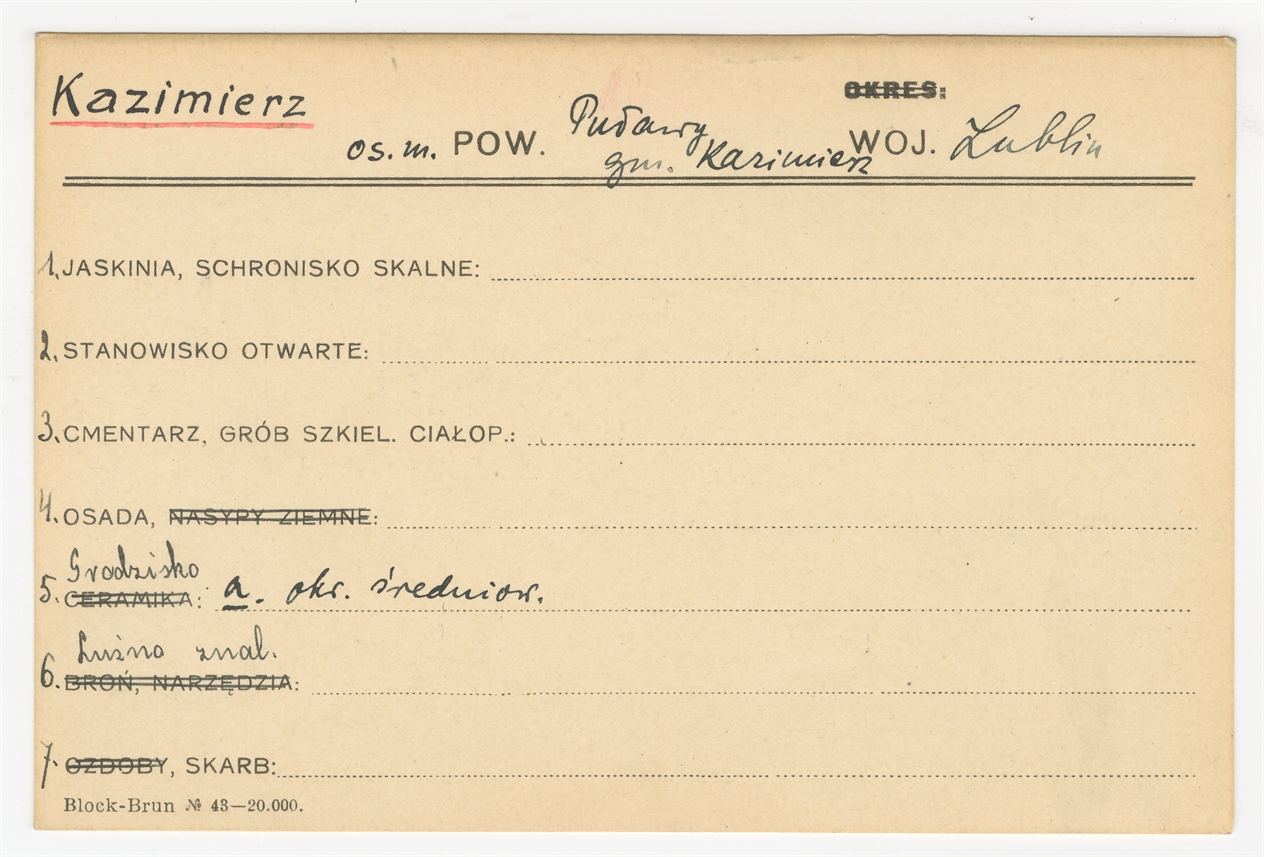 OKRES:
Kazimierz
os. m. POW. Puławy WOJ. Lublin
gm. Kazimierz
1. JASKINIA, SCHRONISKO SKALNE:
2. STANOWISKO OTWARTE:
3. CMENTARZ, GRÓB SZKIEL. CIAŁOP.:
4. OSADA, NASYPY ZIEMNE:
Grodzisko
5. CERAMIKA: a. okr. średniow.
Luźno znal.
6. BROŃ, NARZĘDZIA:
7. OZDOBY, SKARB:
Block-Brun № 43—20.000.